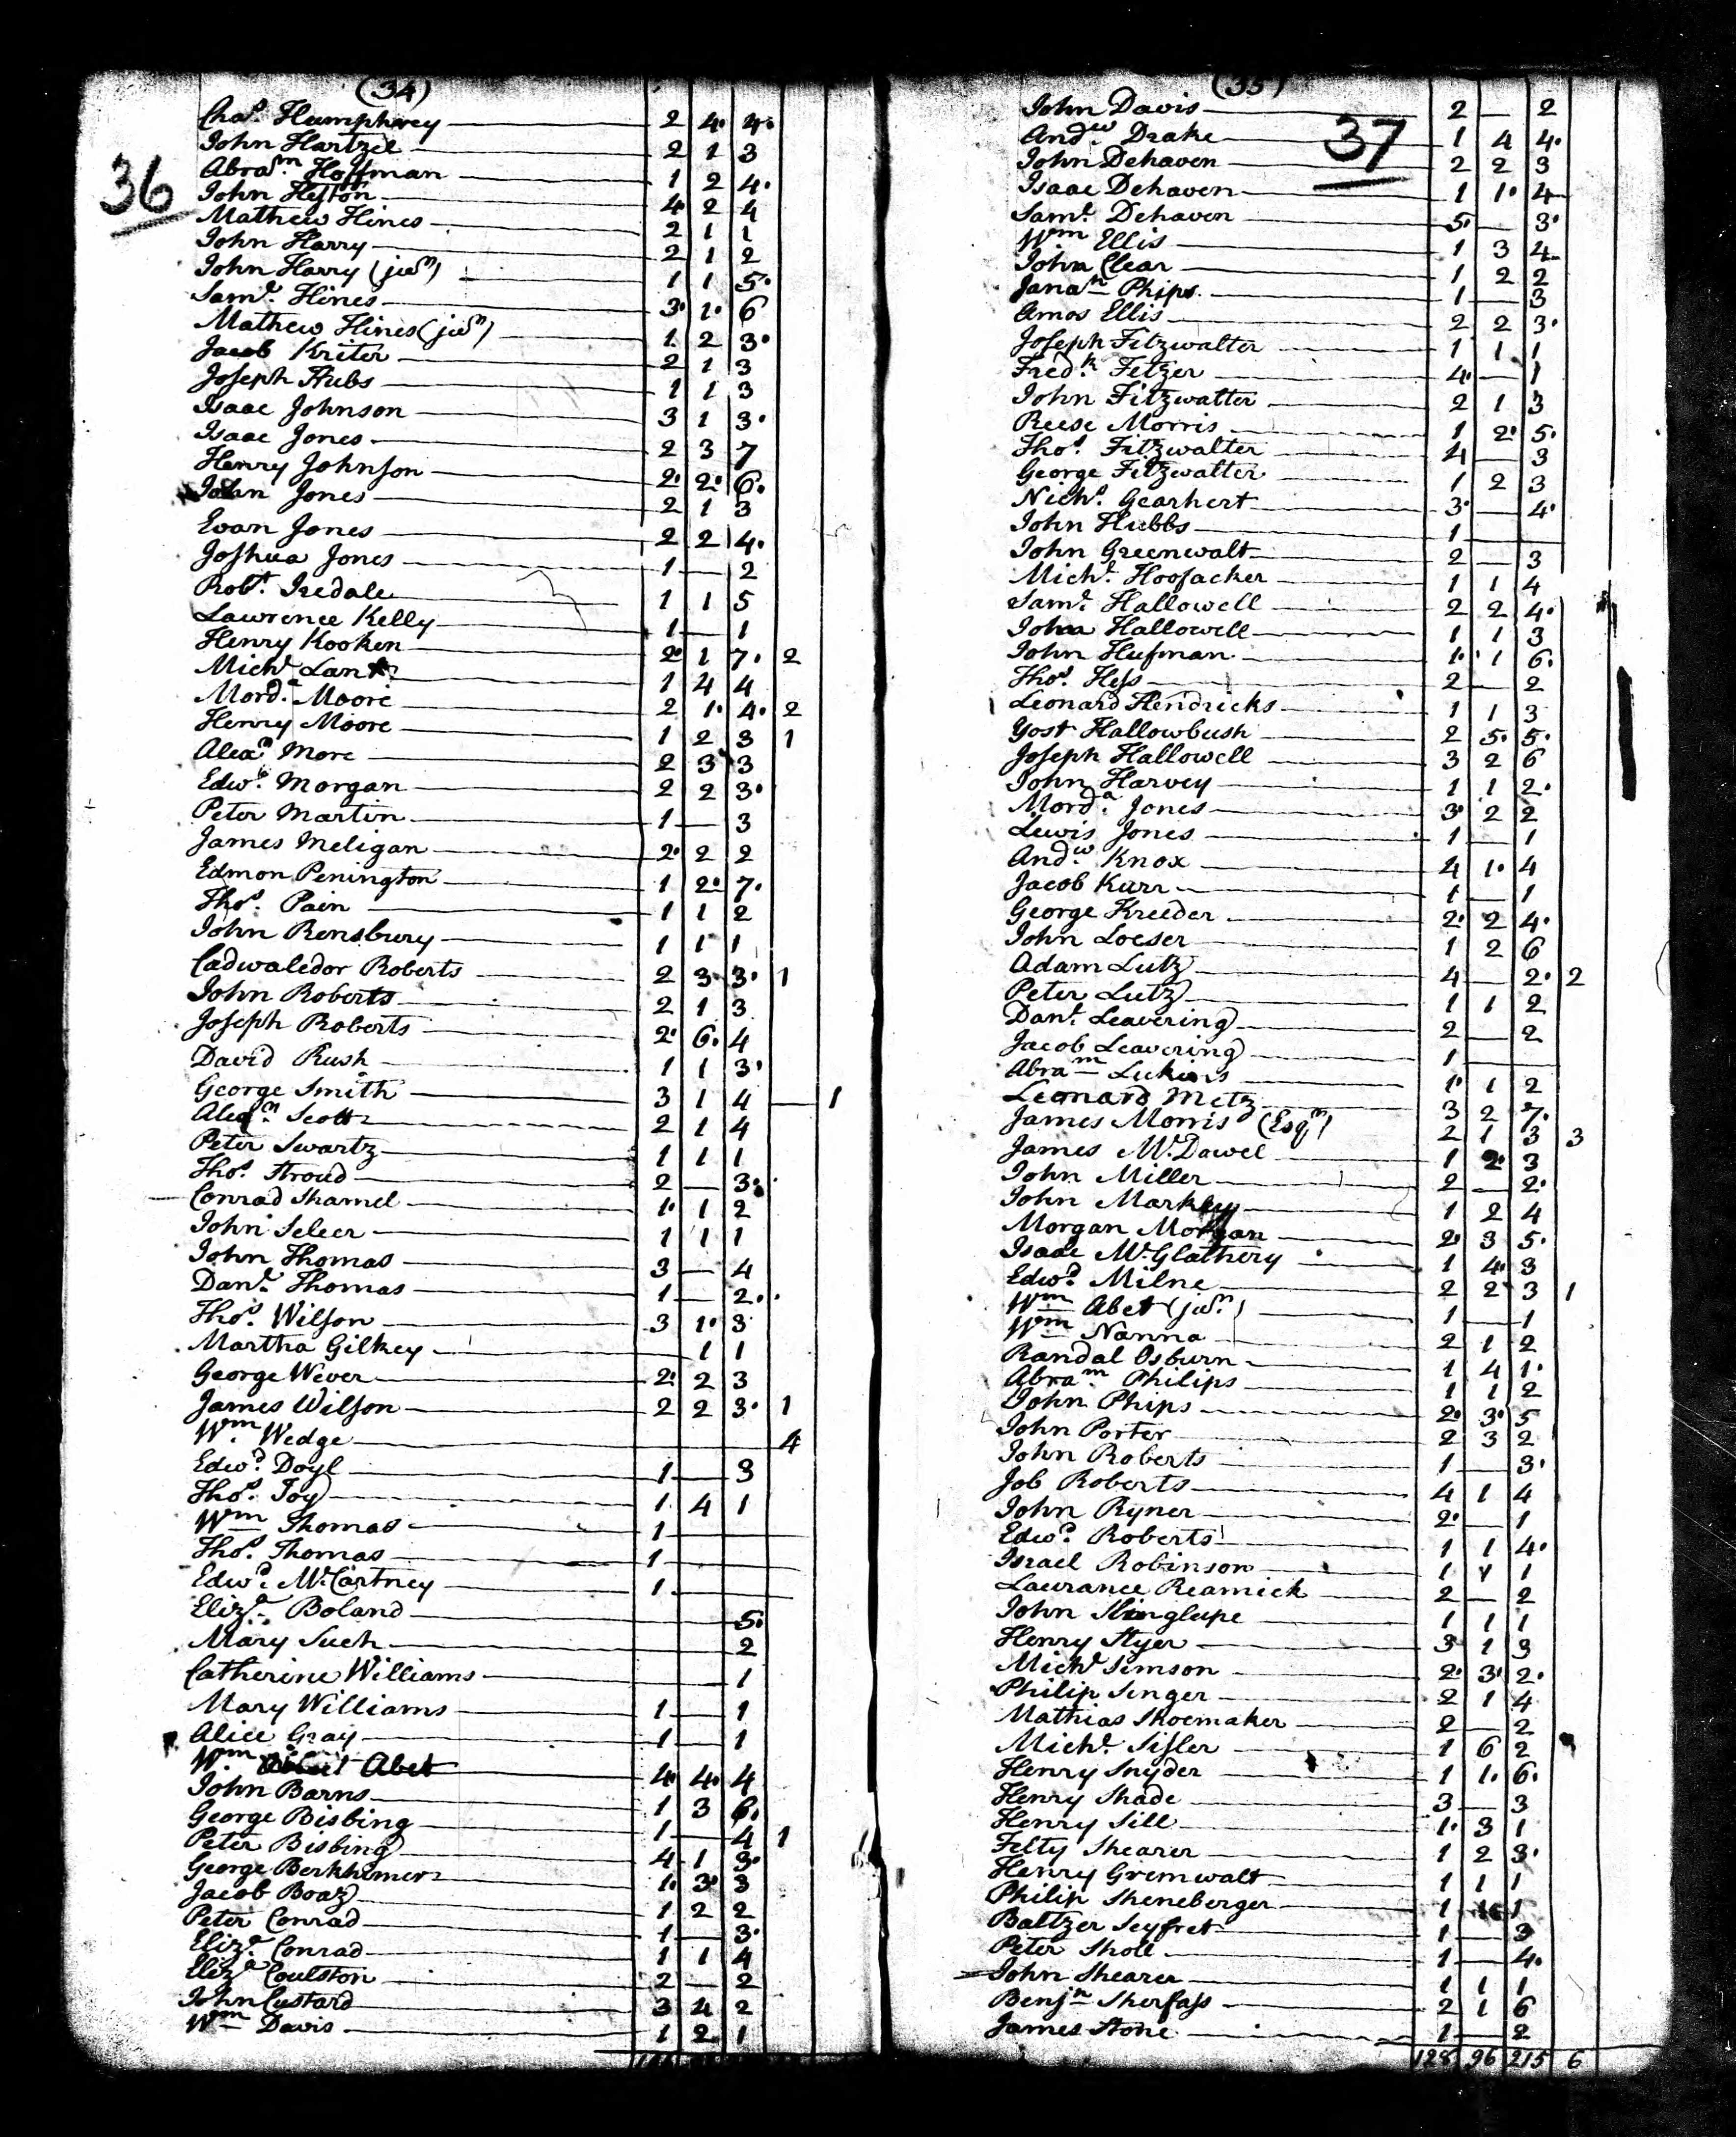 (34)
36
Chas. Humphrey 2 4. 4.
John Hartzel 2 1 3
Abram. Hoffman 1 2 4.
John Heston 4. 2 4
Mathew Hines 2 1 1
John Harry 2 1 2
John Harry (junr) 1 1 5.
Saml. Hines 3. 1. 6
Mathew Hines (junr) 1 2 3.
Jacob Kriter 2 1 3
Joseph Hubs 1 1 3
Isaac Johnson 3 1 3.
Isaac Jones 2 3 7
Henry Johnson 2. 2. 6.
John Jones 2 1 3
Evan Jones 2 2 4.
Joshua Jones 1 — 2
Robt. Iredale 1 1 5
Lawrence Kelly 1 — 1
Henry Kooken 2. 1 7. 2
Michl. 1 4 4
Morda. Moore 2 1. 4. 2
Henry Moore 1 2 3 1
Alexr More 2 3 3
Edwd. Morgan 2 2 3.
Peter Martin 1 — 3
James Meligan 2. 2 2
Edmon Penington 1 2. 7.
Thos. Pain 1 1 2
John Rensbury 1 1 1
Cadwaledor Roberts 2 3. 3. 1
John Roberts 2 1 3
Joseph Roberts 2. 6. 4
David Rush 1 1 3.
George Smith 3 1 4 — 1
Alexr. Scott 2 1 4
Peter Swartz 1 1 1
Thos. Stroud 2 — 3.
Conrad Shamel 1. 1 2
John Seleer 1 1 1
John Thomas 3 — 4
Danl. Thomas 1 — 2.
Thos. Wilson 3 1. 3
Martha Gilkey 1 1
George Wever 2. 2 3
James Wilson 2 2 3. 1
Wm. Wedge 4
Edwd. Doyl 1 — 3
Thos. Toy 1 4 1
Wm Thomas 1
Thos. Thomas 1
Edwd. McCartney 1
Eliza. Boland 5.
Mary Such 2
Catherine Williams 1
Mary Williams 1 — 1
Alice Gray 1 — 1
Wm Abet 4. 4. 4
John Barns 1 3 6.
George Bisbing 1 — 4 1
Peter Bisbing 4 1 3.
George Berkhimer 1. 3. 3
Jacob Boaz 1 2 2
Peter Conrad 1 — 3.
Eliza. Conrad 1 1 4
Eliza Coulston 2 — 2
John Custard 3 4 2
Wm Davis 1 2 1
(35)
37
John Davis 2 — 2
Andw. Drake 1 4 4.
John Dehaven 2 2 3
Isaac Dehaven 1 1. 4
Saml. Dehaven 5. — 3.
Wm Ellis 1 3 4
John Clear 1 2 2
Janan Phips 1 — 3
Amos Ellis 2 2 3.
Joseph Fitzwalter 1 1 1
Fredk. Fetzer 4. — 1
John Fitzwatter 2 1 3
Reese Morris 1 2. 5.
Thos. Fitzwalter 4 — 3
George Fitzwatter 1 2 3
Nichs. Gearhert 3. — 4.
John Hubbs 1
John Greenwalt 2 — 3
Michl. Hoofacker 1 1 4
Saml. Hallowell 2 2 4.
John Hallowell 1 1 3
John Hufman 1. 1 6.
Thos. Hess 2 — 2
Leonard Hendricks 1 1 3
Yost Hallowbush 2 5. 5.
Joseph Hallowell 3 2 6
John Harvey 1 1 2.
Morda. Jones 3. 2 2
Lewis Jones 1 — 1
Andw. Knox 4 1. 4
Jacob Karr 1 — 1
George Kreeder 2. 2 4.
John Loeser 1 2 6
Adam Lutz 4 — 2. 2
Peter Lutz 1 1 2
Danl. Leavering 2 — 2
Jacob Leavering 1
Abram Lukins 1. 1 2
Leonard Metz 3 2 7.
James Morris (Esqr) 2 1 3 3
James McDawel 1 2. 3
John Miller 2 — 2.
John Markley 1 2 4
Morgan Morgan 2. 3 5.
Isaac McGlathery 1 4. 3
Edwd Milne 2 2 3 1
Wm Abet (junr) 1 — 1
Wm Nanna 2 1 2
Randal Osburn 1 4 1.
Abram. Philips 1 1 2
John Phips 2. 3. 5
John Porter 2 3 2
John Roberts 1 — 3.
Job Roberts 4 1 4
John Ryner 2. — 1
Edwd. Roberts 1 1 4.
Israel Robinson 1 4 1
Lawrance Reamick 2 — 2
John Slinglupe 1 1 1
Henry Styer 3 1 3
Michl Simson 2. 3. 2.
Philip Singer 2 1 4
Mathias Shoemaker 2 — 2
Michl. Sisler 1 6 2
Henry Snyder 1 1. 6.
Henry Shade 3 — 3
Henry Sill 1. 3 1
Felty Shearer 1 2 3.
Henry Gremwalt 1 1 1
Philip Sheneberger 1 1
Baltzer Seyfret 1 — 3
Peter Sholl 1 — 4.
John Shearer 1 1 1
Benjn Sherfass 2 1 6
James Stone 1 — 2
128 96 215 6